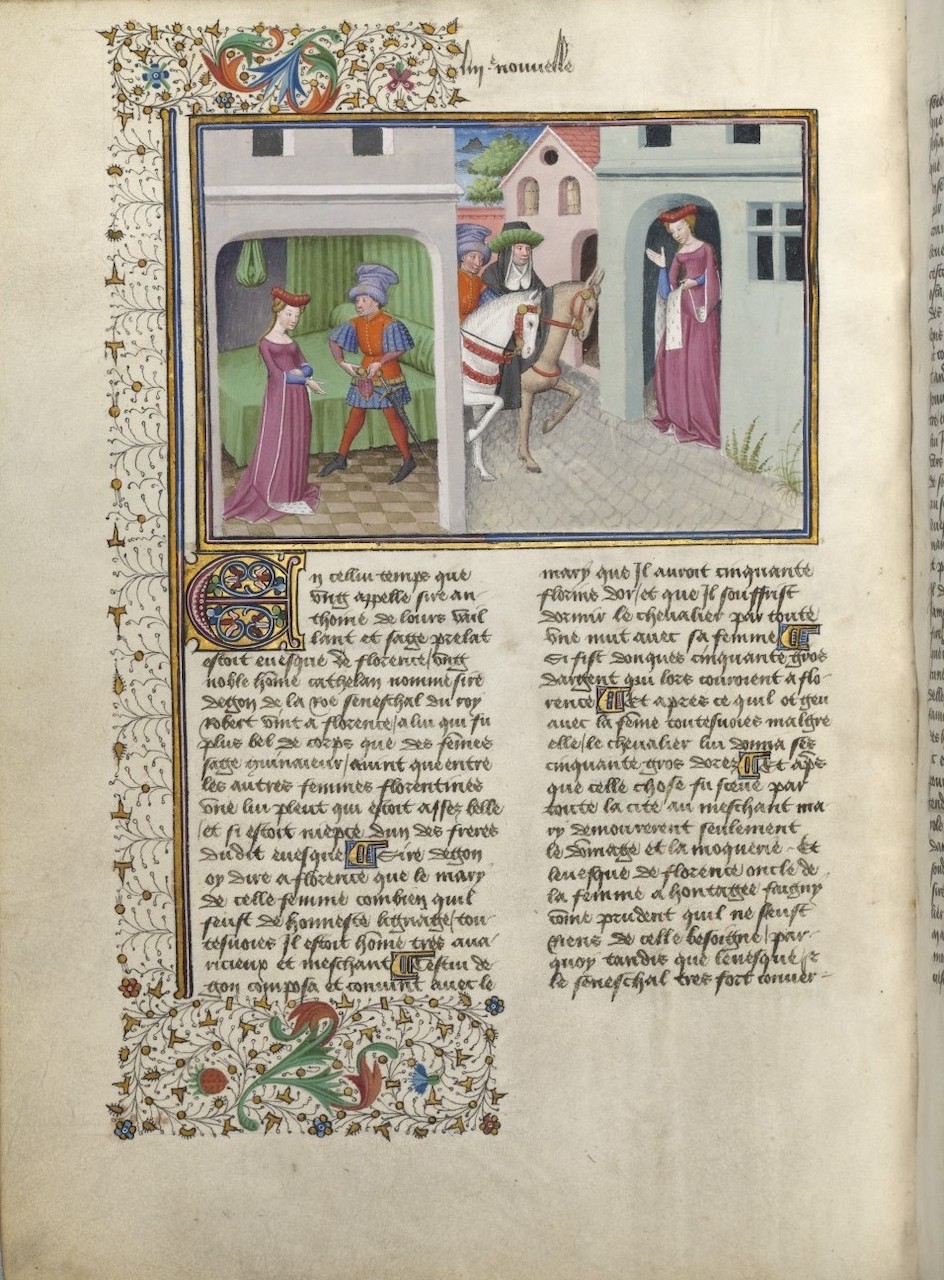 iiii.e nouuelle
En cellui temps que
vng appelle sire an-
thoine de lours vail
lant et sage prelat
estoit euesque de florence / vng
noble home cathelan nomme sire
degon de la roe seneschal du roy
robert vint a florence / a lui qui fu
plus bel de corps que des femes
sage / auint que entre
les autres femmes florentines
vne lui pleut qui estoit assez belle
/ et si estoit niepce dun des freres
dudit euesque Sire degon
oy dire a florence que le mary
de celle femme combien quil
feust de honneste lignage / tou-
tesuoies Il estoit home tres aua-
ricieux et meschant Cestui de-
gon composa et conuint auec le
mary que Il auroit cinquante
florins dor / et que Il souffrist
dormir le cheualier par toute
vne nuit auec sa femme
Si fist donques cinquante gros
dargent qui lors couroient a flo-
rence Et apres ce quil ot geu
auec la feme toutesuoies malgre
elle / le cheualier lui donna ses
cinquante gros dorez Et aps
que celle chose fu sceue par
toute la cite au meschant ma
ry demourerent seulement
le domage et la moquerie - Et
leuesque de florence oncle de
la femme a hontagee faigny
come prudent quil ne sceust
riens de celle besoigne / par-
quoy tandis que leuesque et
le seneschal tres fort conuer-